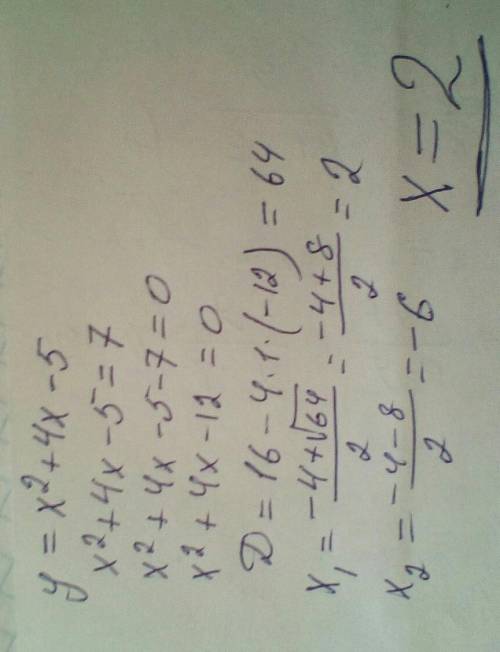 y = x² + 4x - 5
x² + 4x - 5 = 7
x² + 4x - 5 - 7 = 0
x² + 4x - 12 = 0
D = 16 - 4·1·(-12) = 64
x₁ = (-4+√64)/2 = (-4+8)/2 = 2
x₂ = (-4-8)/2 = -6
x = 2